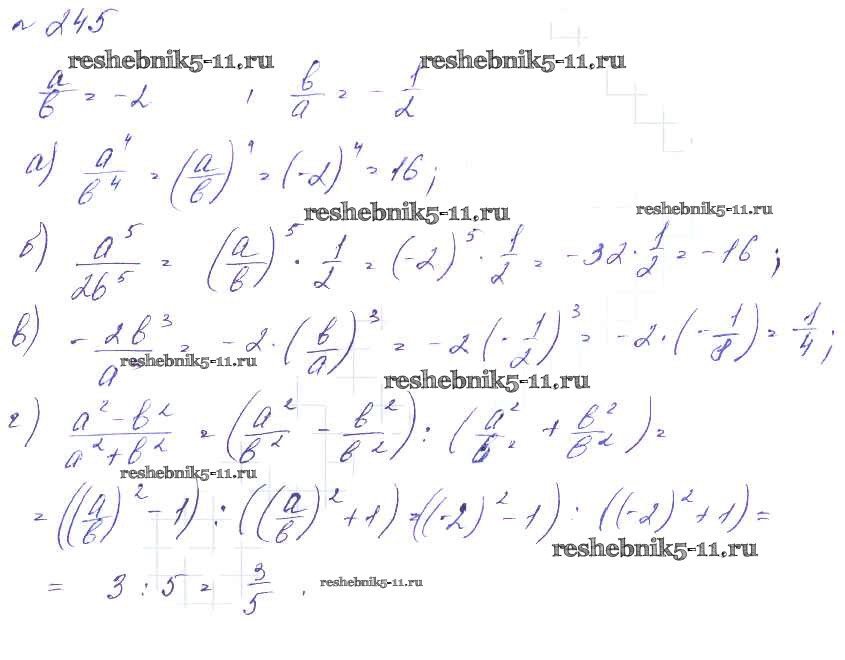 № 245
reshebnik5-11.ru reshebnik5-11.ru
a/b = -2 , b/a = - 1/2
а) a⁴/b⁴ = (a/b)⁴ = (-2)⁴ = 16;
reshebnik5-11.ru reshebnik5-11.ru
б) a⁵/2b⁵ = (a/b)⁵ · 1/2 = (-2)⁵ · 1/2 = -32 · 1/2 = -16;
в) - 2b³/a³ = -2 · (b/a)³ = -2 (- 1/2)³ = -2 · (- 1/8) = 1/4;
reshebnik5-11.ru
reshebnik5-11.ru
г) a² - b²/a² + b² = (a²/b² - b²/b²) : (a²/b² + b²/b²) =
reshebnik5-11.ru
= ((a/b)² - 1) : ((a/b)² + 1) = ((-2)² - 1) : ((-2)² + 1) =
reshebnik5-11.ru
= 3 : 5 = 3/5 .
reshebnik5-11.ru